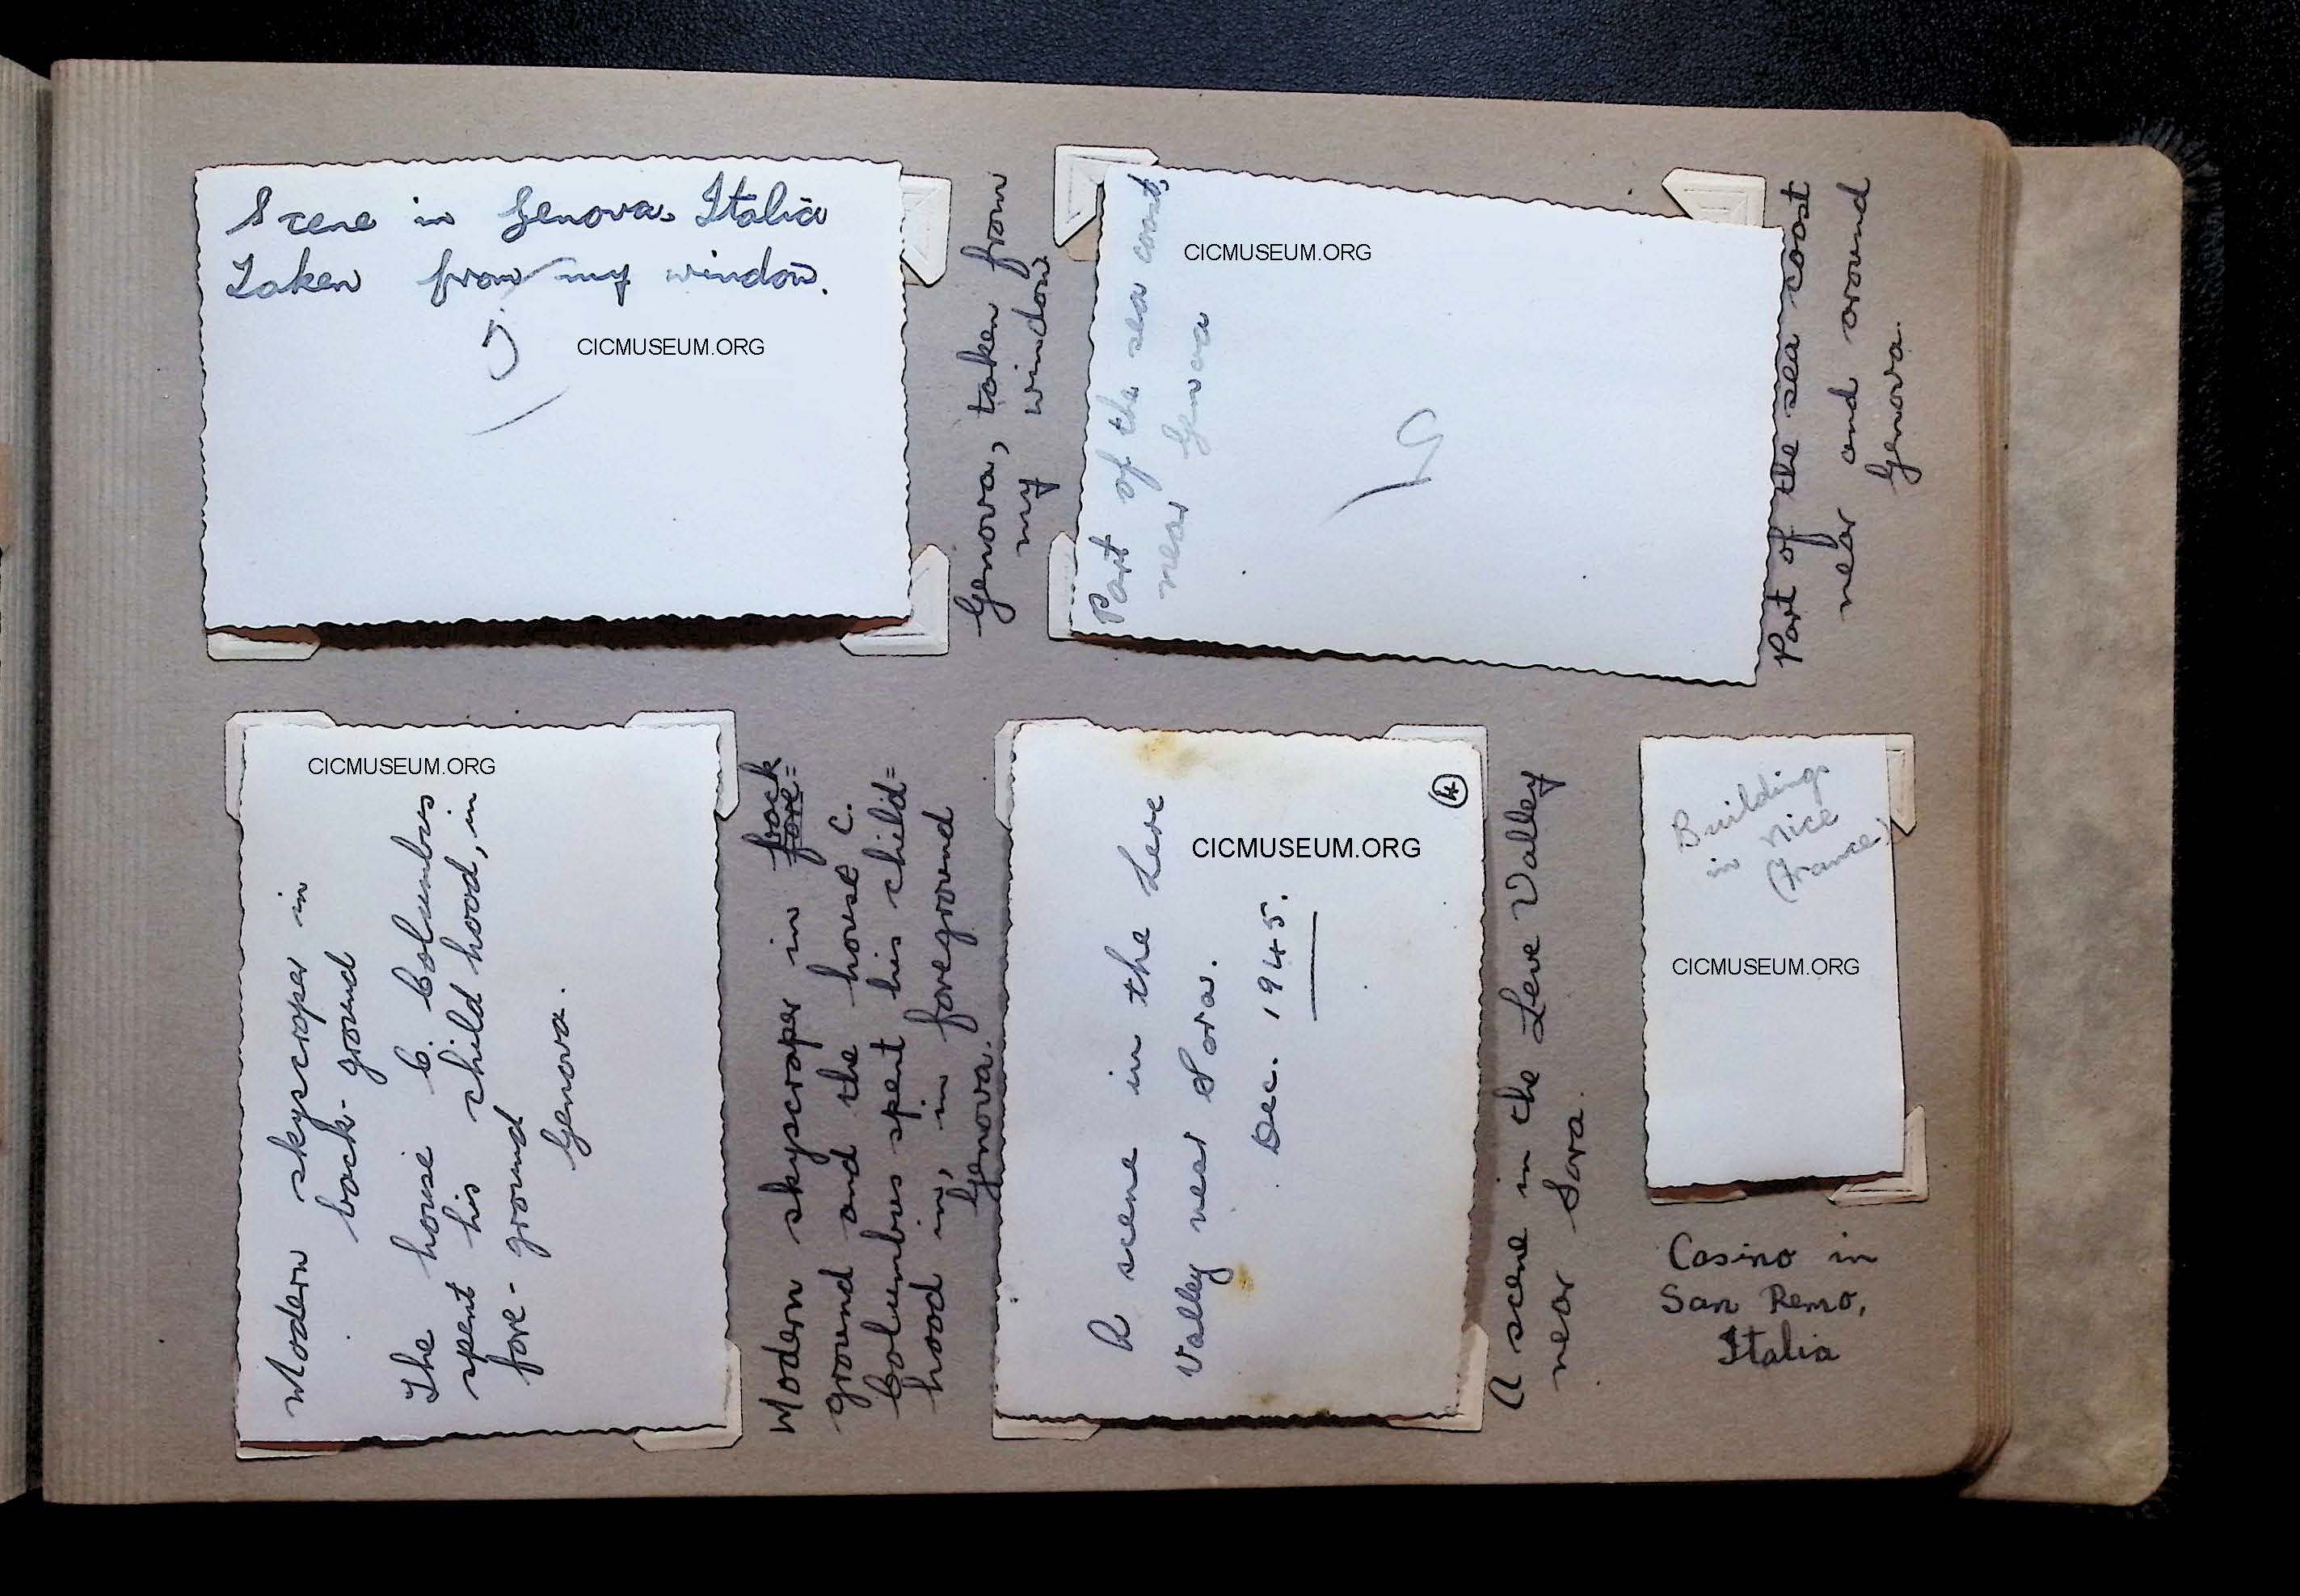 Scene in Genova, Italia
Taken from my window.
5
CICMUSEUM.ORG
Genova, taken from
my window.
Part of the sea coast,
near Genova
CICMUSEUM.ORG
5
Part of the sea coast
near and around
Genova.
CICMUSEUM.ORG
Modern skyscraper in
back-ground
The house C. Columbus
spent his child hood, in
fore-ground
Genova.
Modern skyscraper in back
fore=
ground and the house C.
Columbus spent his child=
hood in, in foreground
Genova.
A scene in the Leve
Valley near Sora.
Dec. 1945.
4
CICMUSEUM.ORG
A scene in the Leve Valley
near Sora.
Buildings
in Nice
(France)
CICMUSEUM.ORG
Casino in
San Remo,
Italia